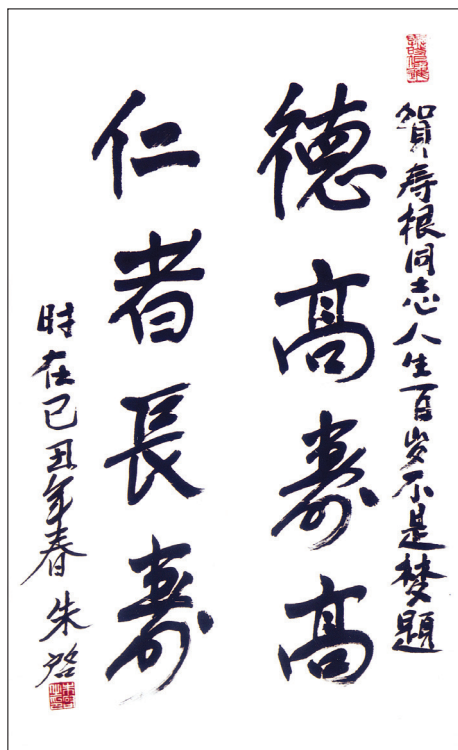 賀寿根同志人生百岁不是梦题
德高壽高
仁者長壽
时在己丑年春 朱啓